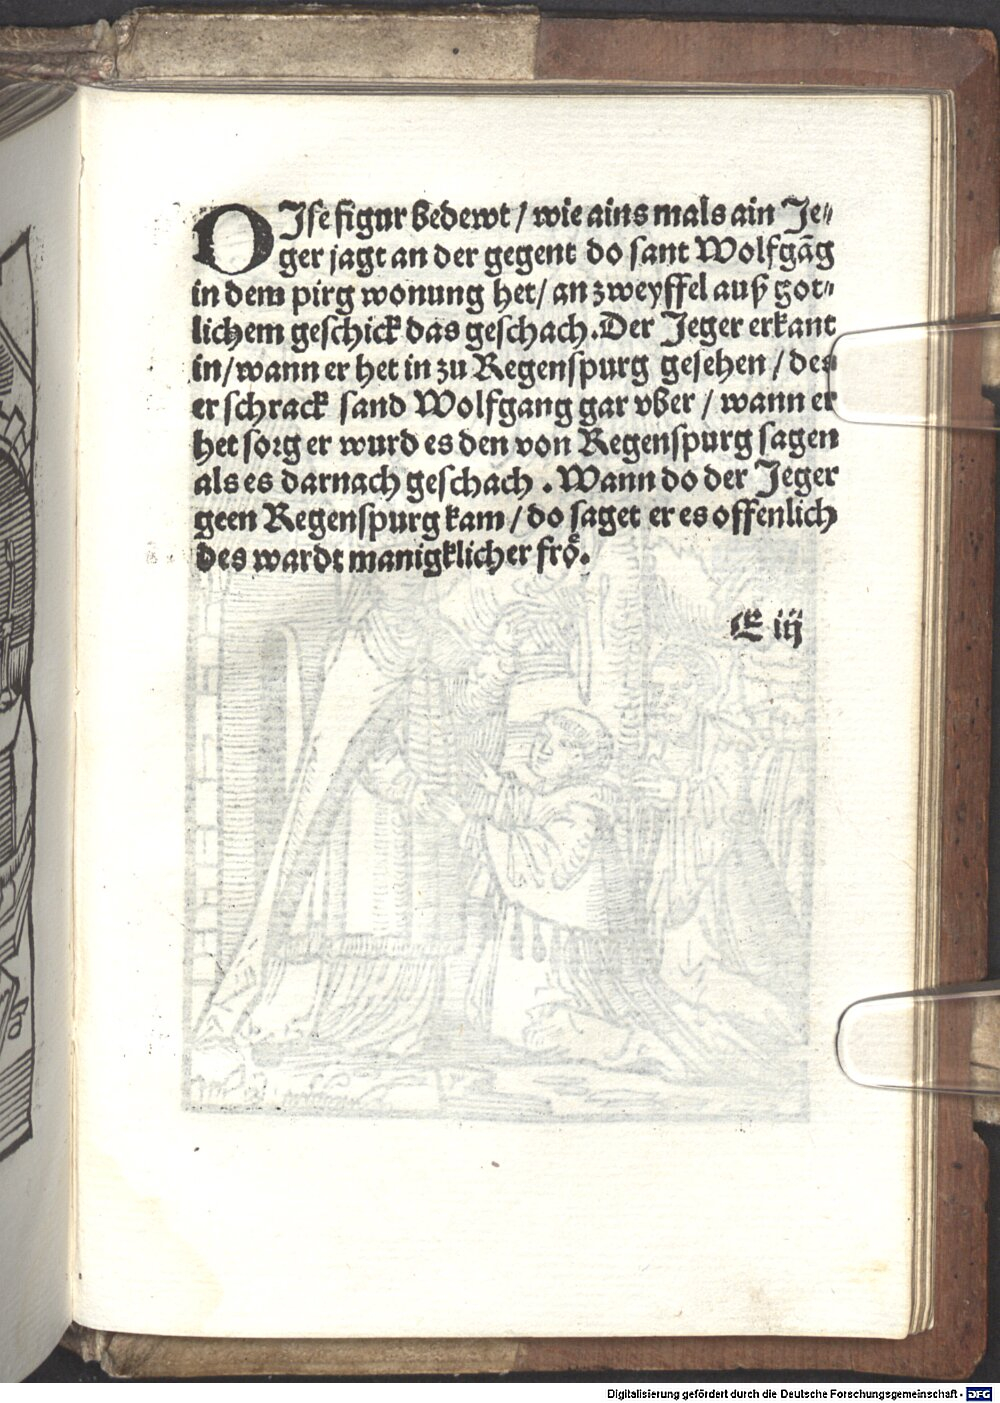 DIse figur bedewt / wie ains mals ain Je⸗
ger jagt an der gegent do sant Wolfgãg
in dem pirg wonung het / an zweyffel auß got⸗
lichem geschick das geschach. Der Jeger erkant
in / wann er het in zu Regenspurg gesehen / des
er schrack sand Wolfgang gar vber / wann er
het sorg er wurd es den von Regenspurg sagen
als es darnach geschach . Wann do der Jeger
geen Regenspurg kam / do saget er es offenlich
des wardt manigklicher froͤ.
E iij
Digitalisierung gefördert durch die Deutsche Forschungsgemeinschaft - DFG